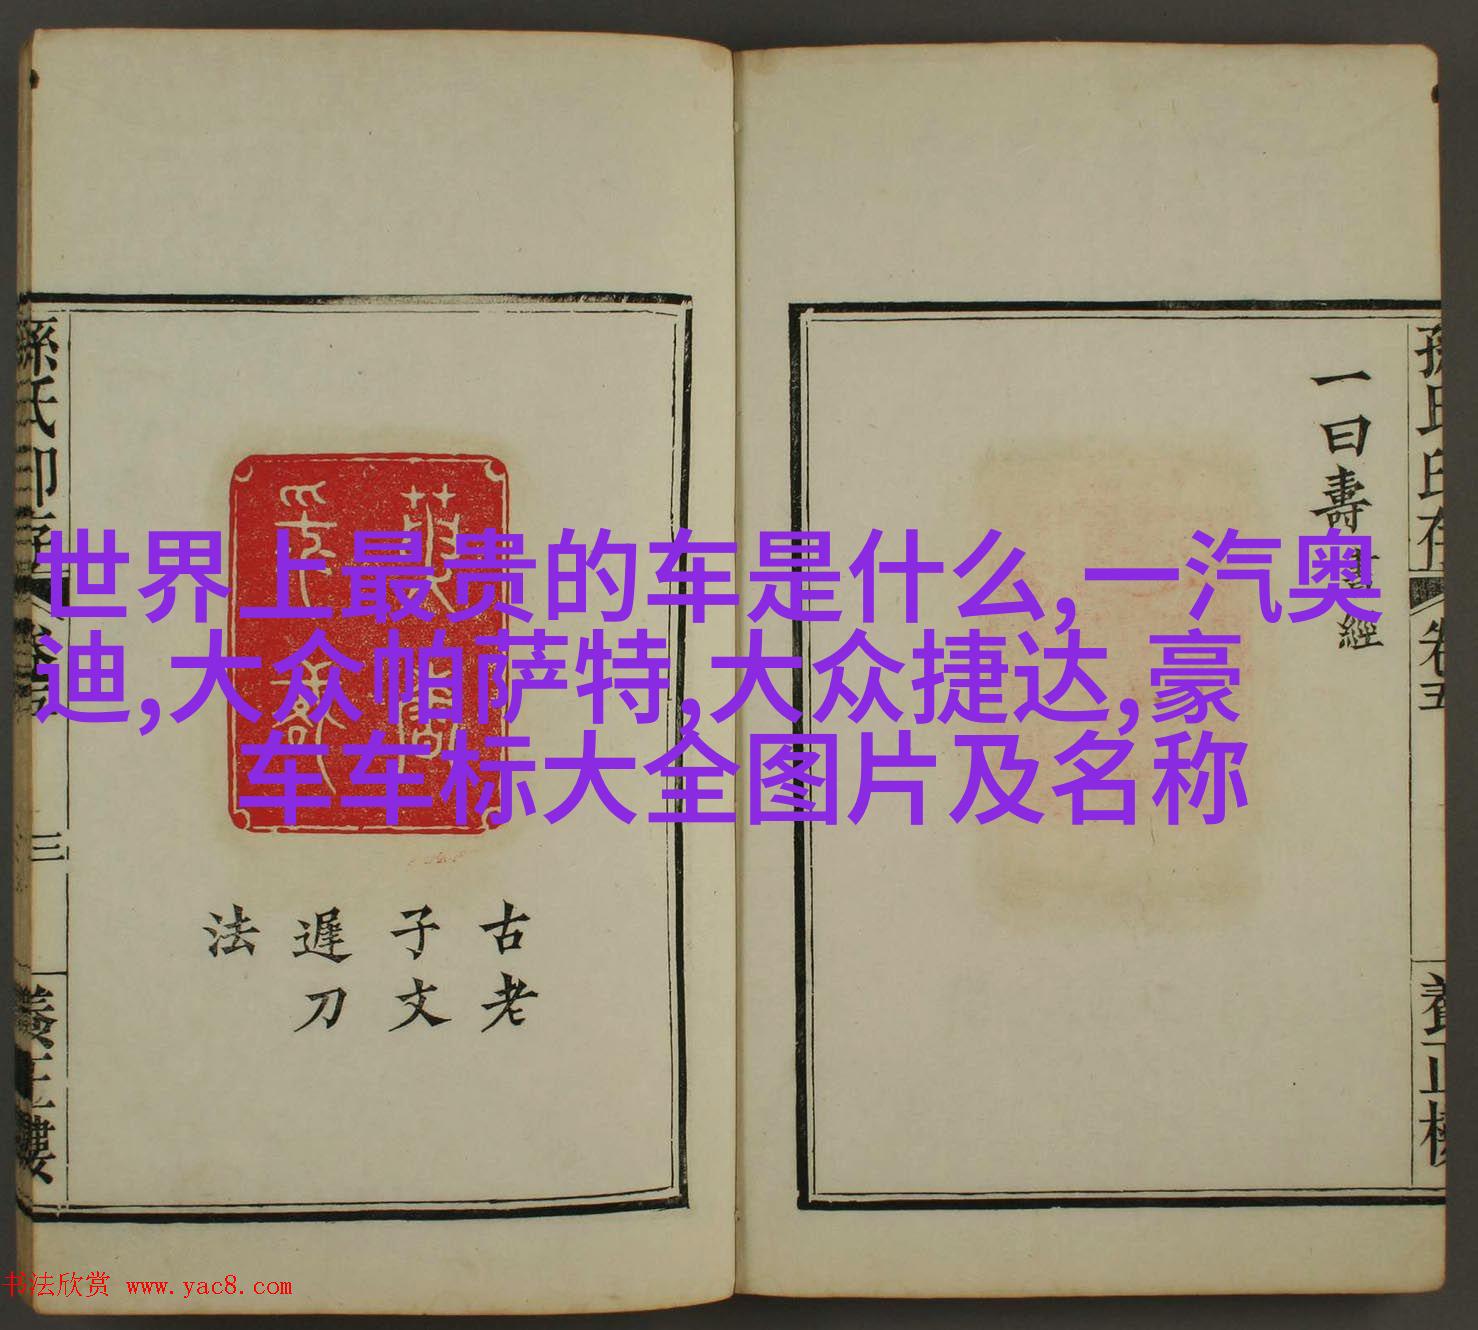 世界上最贵的车是什么,一汽奥
迪,大众帕萨特,大众捷达,豪
车车标大全图片及名称
孫氏印存
卷五
養正樓
一曰壽
經
古老
子文
遲刀
法
孫氏印存
卷五
三
養正樓
书法欣赏 www.yac8.com